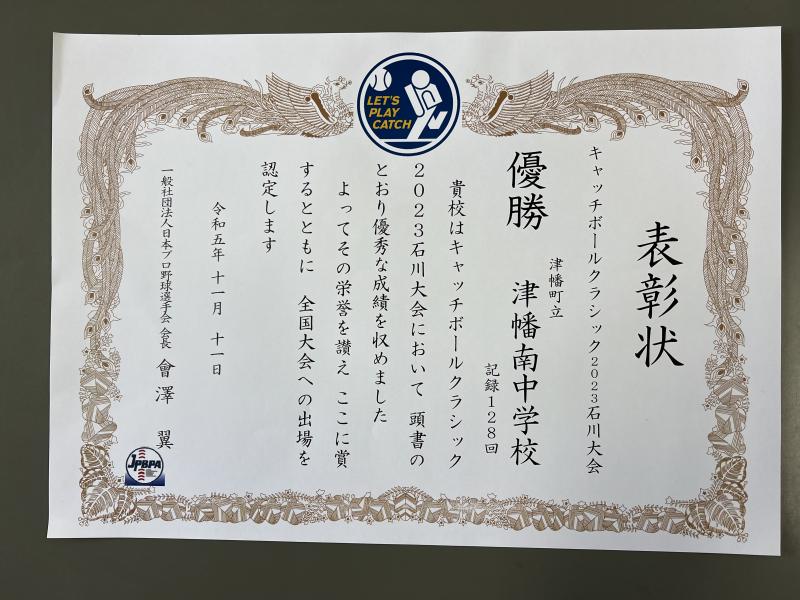 LET'S
PLAY
CATCH
表彰状
キャッチボールクラシック2023石川大会
優勝
津幡町立
津幡南中学校
記録128回
貴校はキャッチボールクラシック
2023石川大会において 頭書の
とおり優秀な成績を収めました
よってその栄誉を讃え ここに賞
するとともに 全国大会への出場を
認定します
令和五年 十一月 十一日
一般社団法人日本プロ野球選手会 会長 會澤 翼
JPBPA